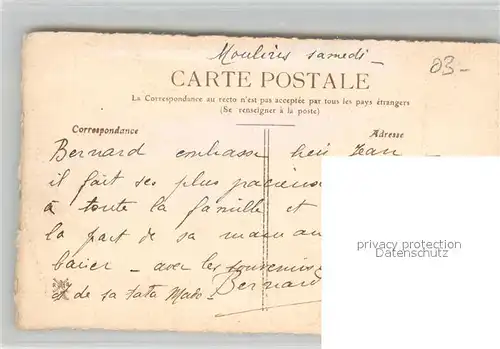 Moulins samedi -
03-
CARTE POSTALE
La Correspondance au recto n'est pas acceptée par tous les pays étrangers
(Se renseigner à la poste)
Correspondance Adresse
Bernard embrasse Jean
il fait ses plus
à toute la famille et
la part de sa maman
- avec les souvenirs
et de sa tata Mado -
Bernard
privacy protection
Datenschutz